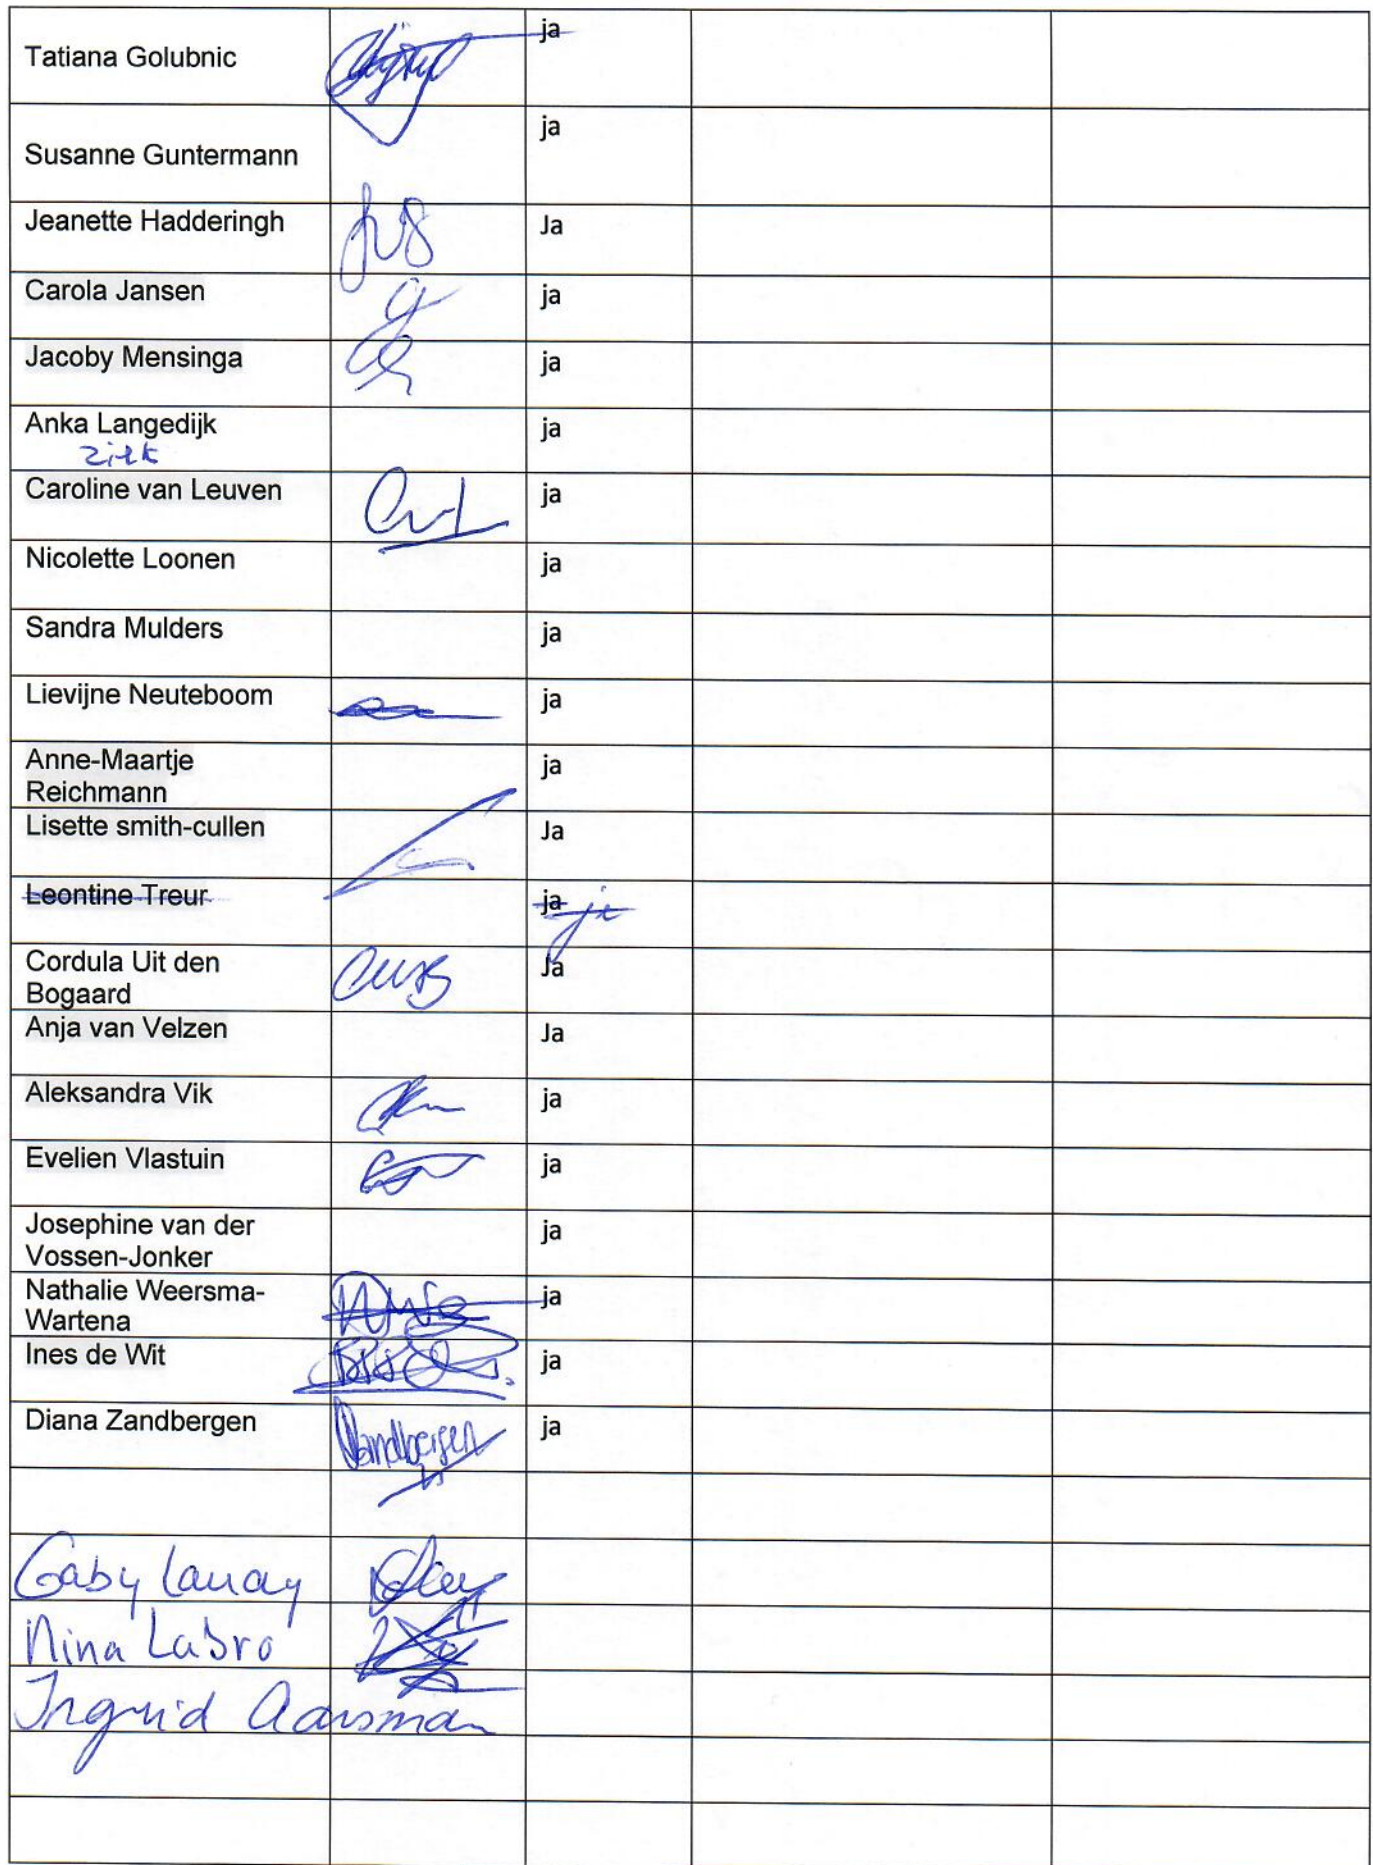 Tatiana Golubnic ja
Susanne Guntermann ja
Jeanette Hadderingh Ja
Carola Jansen ja
Jacoby Mensinga ja
Anka Langedijk ja
ziek
Caroline van Leuven ja
Nicolette Loonen ja
Sandra Mulders ja
Lievijne Neuteboom ja
Anne-Maartje ja
Reichmann
Lisette smith-cullen Ja
Leontine Treur ja
Cordula Uit den Ja
Bogaard
Anja van Velzen Ja
Aleksandra Vik ja
Evelien Vlastuin ja
Josephine van der ja
Vossen-Jonker
Nathalie Weersma- ja
Wartena
Ines de Wit ja
Diana Zandbergen Zandbergen ja
Gaby
Nina Labro
Ingrid Aarsman